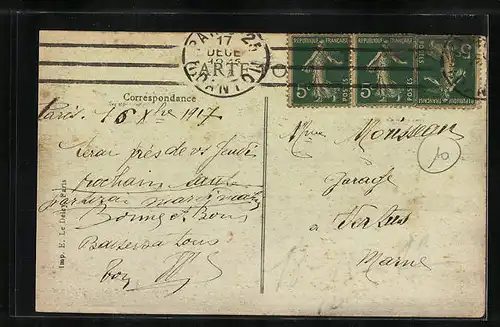 17
DECE
CARTE PO
REPUBLIQUE FRANÇAISE
POSTES
5c
REPUBLIQUE FRANÇAISE
POSTES
5c
REPUBLIQUE FRANÇAISE
POSTES
5c
Correspondance
Paris. 16 Xbre 1917
Serai près de vs Jeudi
prochain
partirai mardi matin
Bonne et Bons
Baisers a tous
Mme Monsseau
Garage
à Vertus
Marne
10
Imp. E. Le Deley, Paris